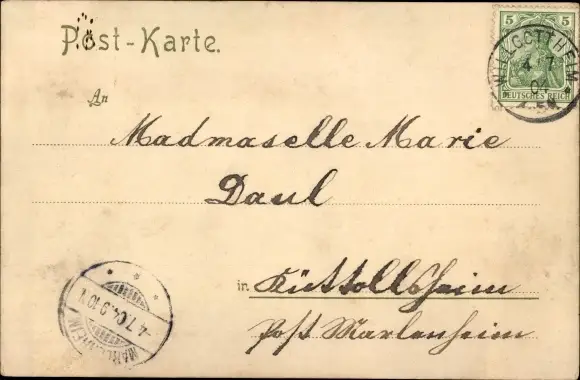 Post-Karte.
5
DEUTSCHES REICH
WILLGOTTHEIM
4 7
04
An
Madmaselle Marie
Daul
in Küttolsheim
Post Marlenheim
MARLENHEIM
-4.7.04.9-10V.